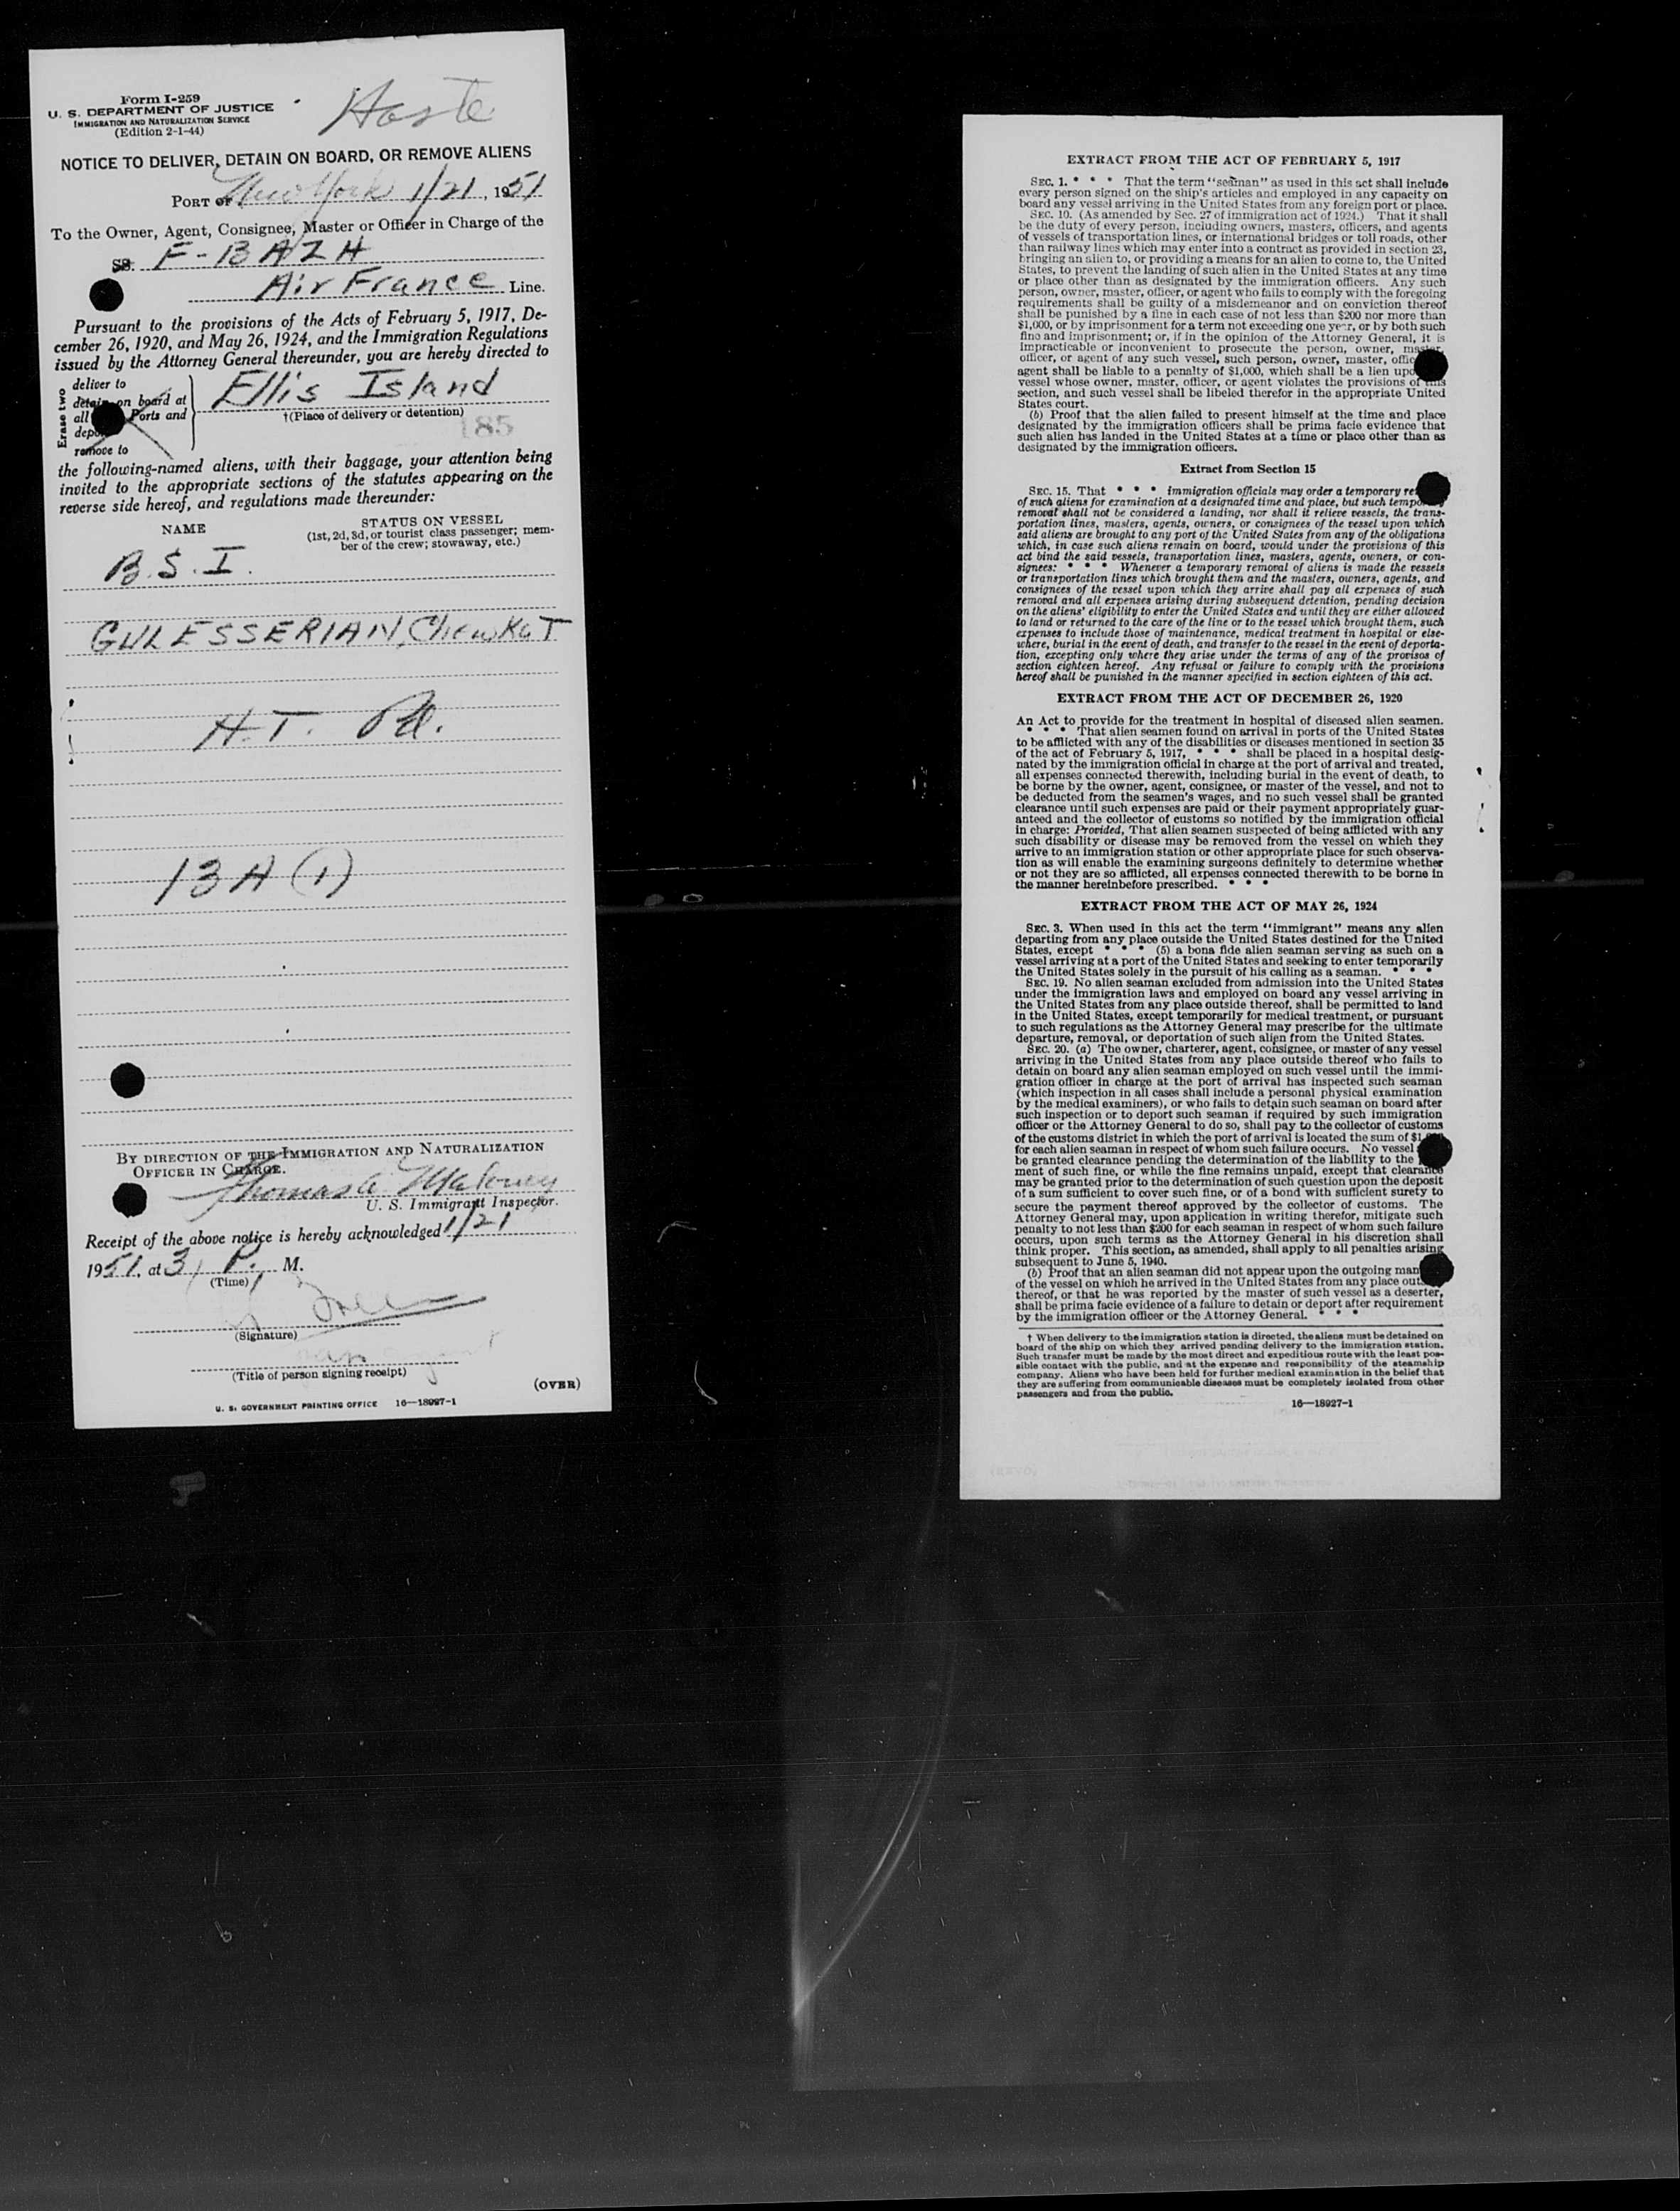 Form I-259
U. S. DEPARTMENT OF JUSTICE
IMMIGRATION AND NATURALIZATION SERVICE
(Edition 2-1-44)
NOTICE TO DELIVER, DETAIN ON BOARD, OR REMOVE ALIENS
PORT OF New York 1/21, 1951
To the Owner, Agent, Consignee, Master or Officer in Charge of the
SS. F-BAZH
Air France Line.
Pursuant to the provisions of the Acts of February 5, 1917, De-
cember 26, 1920, and May 26, 1924, and the Immigration Regulations
issued by the Attorney General thereunder, you are hereby directed to
Erase two
deliver to
detain on board at
all Ports and
remove to
Ellis Island
†(Place of delivery or detention)
185
the following-named aliens, with their baggage, your attention being
invited to the appropriate sections of the statutes appearing on the
reverse side hereof, and regulations made thereunder:
NAME
STATUS ON VESSEL
(1st, 2d, 3d, or tourist class passenger; mem-
ber of the crew; stowaway, etc.)
B.S.I.
GULESSERIAN,
H.T. Pd.
13A(1)
BY DIRECTION OF THE IMMIGRATION AND NATURALIZATION
OFFICER IN CHARGE.
Thomas A Maloney
U. S. Immigrant Inspector.
Receipt of the above notice is hereby acknowledged 1/21
1951, at 3, P. M.
(Time)
(Signature)
(Title of person signing receipt)
(OVER)
U. S. GOVERNMENT PRINTING OFFICE 16—18927-1
EXTRACT FROM THE ACT OF FEBRUARY 5, 1917
SEC. 1. * * * That the term "seaman" as used in this act shall include
every person signed on the ship's articles and employed in any capacity on
board any vessel arriving in the United States from any foreign port or place.
SEC. 10. (As amended by Sec. 27 of immigration act of 1924.) That it shall
be the duty of every person, including owners, masters, officers, and agents
of vessels of transportation lines, or international bridges or toll roads, other
than railway lines which may enter into a contract as provided in section 23,
bringing an alien to, or providing a means for an alien to come to, the United
States, to prevent the landing of such alien in the United States at any time
or place other than as designated by the immigration officers. Any such
person, owner, master, officer, or agent who fails to comply with the foregoing
requirements shall be guilty of a misdemeanor and on conviction thereof
shall be punished by a fine in each case of not less than $200 nor more than
$1,000, or by imprisonment for a term not exceeding one year, or by both such
fine and imprisonment; or, if in the opinion of the Attorney General, it is
impracticable or inconvenient to prosecute the person, owner, master,
officer, or agent of any such vessel, such person, owner, master,
agent shall be liable to a penalty of $1,000, which shall be a lien
vessel whose owner, master, officer, or agent violates the provisions of this
section, and such vessel shall be libeled therefor in the appropriate United
States court.
(b) Proof that the alien failed to present himself at the time and place
designated by the immigration officers shall be prima facie evidence that
such alien has landed in the United States at a time or place other than as
designated by the immigration officers.
Extract from Section 15
SEC. 15. That * * * immigration officials may order a temporary
of such aliens for examination at a designated time and place, but such temporary
removal shall not be considered a landing, nor shall it relieve vessels, the trans-
portation lines, masters, agents, owners, or consignees of the vessel upon which
said aliens are brought to any port of the United States from any of the obligations
which, in case such aliens remain on board, would under the provisions of this
act bind the said vessels, transportation lines, masters, agents, owners, or con-
signees: * * * Whenever a temporary removal of aliens is made the vessels
or transportation lines which brought them and the masters, owners, agents, and
consignees of the vessel upon which they arrive shall pay all expenses of such
removal and all expenses arising during subsequent detention, pending decision
on the aliens' eligibility to enter the United States and until they are either allowed
to land or returned to the care of the line or to the vessel which brought them, such
expenses to include those of maintenance, medical treatment in hospital or else-
where, burial in the event of death, and transfer to the vessel in the event of deporta-
tion, excepting only where they arise under the terms of any of the provisos of
section eighteen hereof. Any refusal or failure to comply with the provisions
hereof shall be punished in the manner specified in section eighteen of this act.
EXTRACT FROM THE ACT OF DECEMBER 26, 1920
An Act to provide for the treatment in hospital of diseased alien seamen.
* * * That alien seamen found on arrival in ports of the United States
to be afflicted with any of the disabilities or diseases mentioned in section 35
of the act of February 5, 1917, * * * shall be placed in a hospital desig-
nated by the immigration official in charge at the port of arrival and treated,
all expenses connected therewith, including burial in the event of death, to
be borne by the owner, agent, consignee, or master of the vessel, and not to
be deducted from the seamen's wages, and no such vessel shall be granted
clearance until such expenses are paid or their payment appropriately guar-
anteed and the collector of customs so notified by the immigration official
in charge: Provided, That alien seamen suspected of being afflicted with any
such disability or disease may be removed from the vessel on which they
arrive to an immigration station or other appropriate place for such observa-
tion as will enable the examining surgeons definitely to determine whether
or not they are so afflicted, all expenses connected therewith to be borne in
the manner hereinbefore prescribed. * * *
EXTRACT FROM THE ACT OF MAY 26, 1924
SEC. 3. When used in this act the term "immigrant" means any alien
departing from any place outside the United States destined for the United
States, except * * * (5) a bona fide alien seaman serving as such on a
vessel arriving at a port of the United States and seeking to enter temporarily
the United States solely in the pursuit of his calling as a seaman. * * *
SEC. 19. No alien seaman excluded from admission into the United States
under the immigration laws and employed on board any vessel arriving in
the United States from any place outside thereof, shall be permitted to land
in the United States, except temporarily for medical treatment, or pursuant
to such regulations as the Attorney General may prescribe for the ultimate
departure, removal, or deportation of such alien from the United States.
SEC. 20. (a) The owner, charterer, agent, consignee, or master of any vessel
arriving in the United States from any place outside thereof who fails to
detain on board any alien seaman employed on such vessel until the immi-
gration officer in charge at the port of arrival has inspected such seaman
(which inspection in all cases shall include a personal physical examination
by the medical examiners), or who fails to detain such seaman on board after
such inspection or to deport such seaman if required by such immigration
officer or the Attorney General to do so, shall pay to the collector of customs
of the customs district in which the port of arrival is located the sum of
for each alien seaman in respect of whom such failure occurs. No vessel
be granted clearance pending the determination of the liability to the
ment of such fine, or while the fine remains unpaid, except that clearance
may be granted prior to the determination of such question upon the deposit
of a sum sufficient to cover such fine, or of a bond with sufficient surety to
secure the payment thereof approved by the collector of customs. The
Attorney General may, upon application in writing therefor, mitigate such
penalty to not less than $200 for each seaman in respect of whom such failure
occurs, upon such terms as the Attorney General in his discretion shall
think proper. This section, as amended, shall apply to all penalties arising
subsequent to June 5, 1940.
(b) Proof that an alien seaman did not appear upon the outgoing
of the vessel on which he arrived in the United States from any place
thereof, or that he was reported by the master of such vessel as a deserter,
shall be prima facie evidence of a failure to detain or deport after requirement
by the immigration officer or the Attorney General. * * *
† When delivery to the immigration station is directed, the aliens must be detained on
board of the ship on which they arrived pending delivery to the immigration station.
Such transfer must be made by the most direct and expeditious route with the least pos-
sible contact with the public, and at the expense and responsibility of the steamship
company. Aliens who have been held for further medical examination in the belief that
they are suffering from communicable diseases must be completely isolated from other
passengers and from the public.
16—18927-1